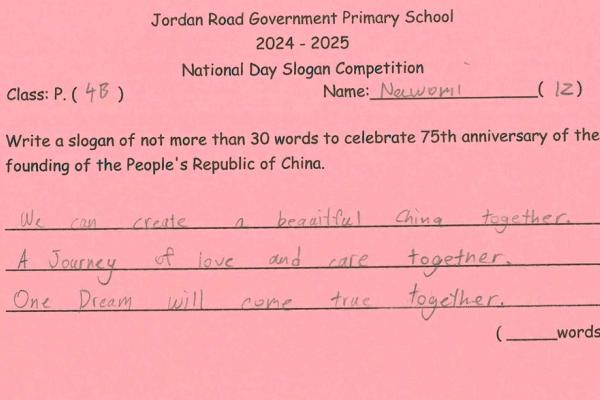 Jordan Road Government Primary School
2024 - 2025
National Day Slogan Competition
Class: P. ( 4B ) Name: ( 12 )
Write a slogan of not more than 30 words to celebrate 75th anniversary of the
founding of the People's Republic of China.
We can create a beautiful China together.
A Journey of love and care together.
One Dream will come true together.
( words